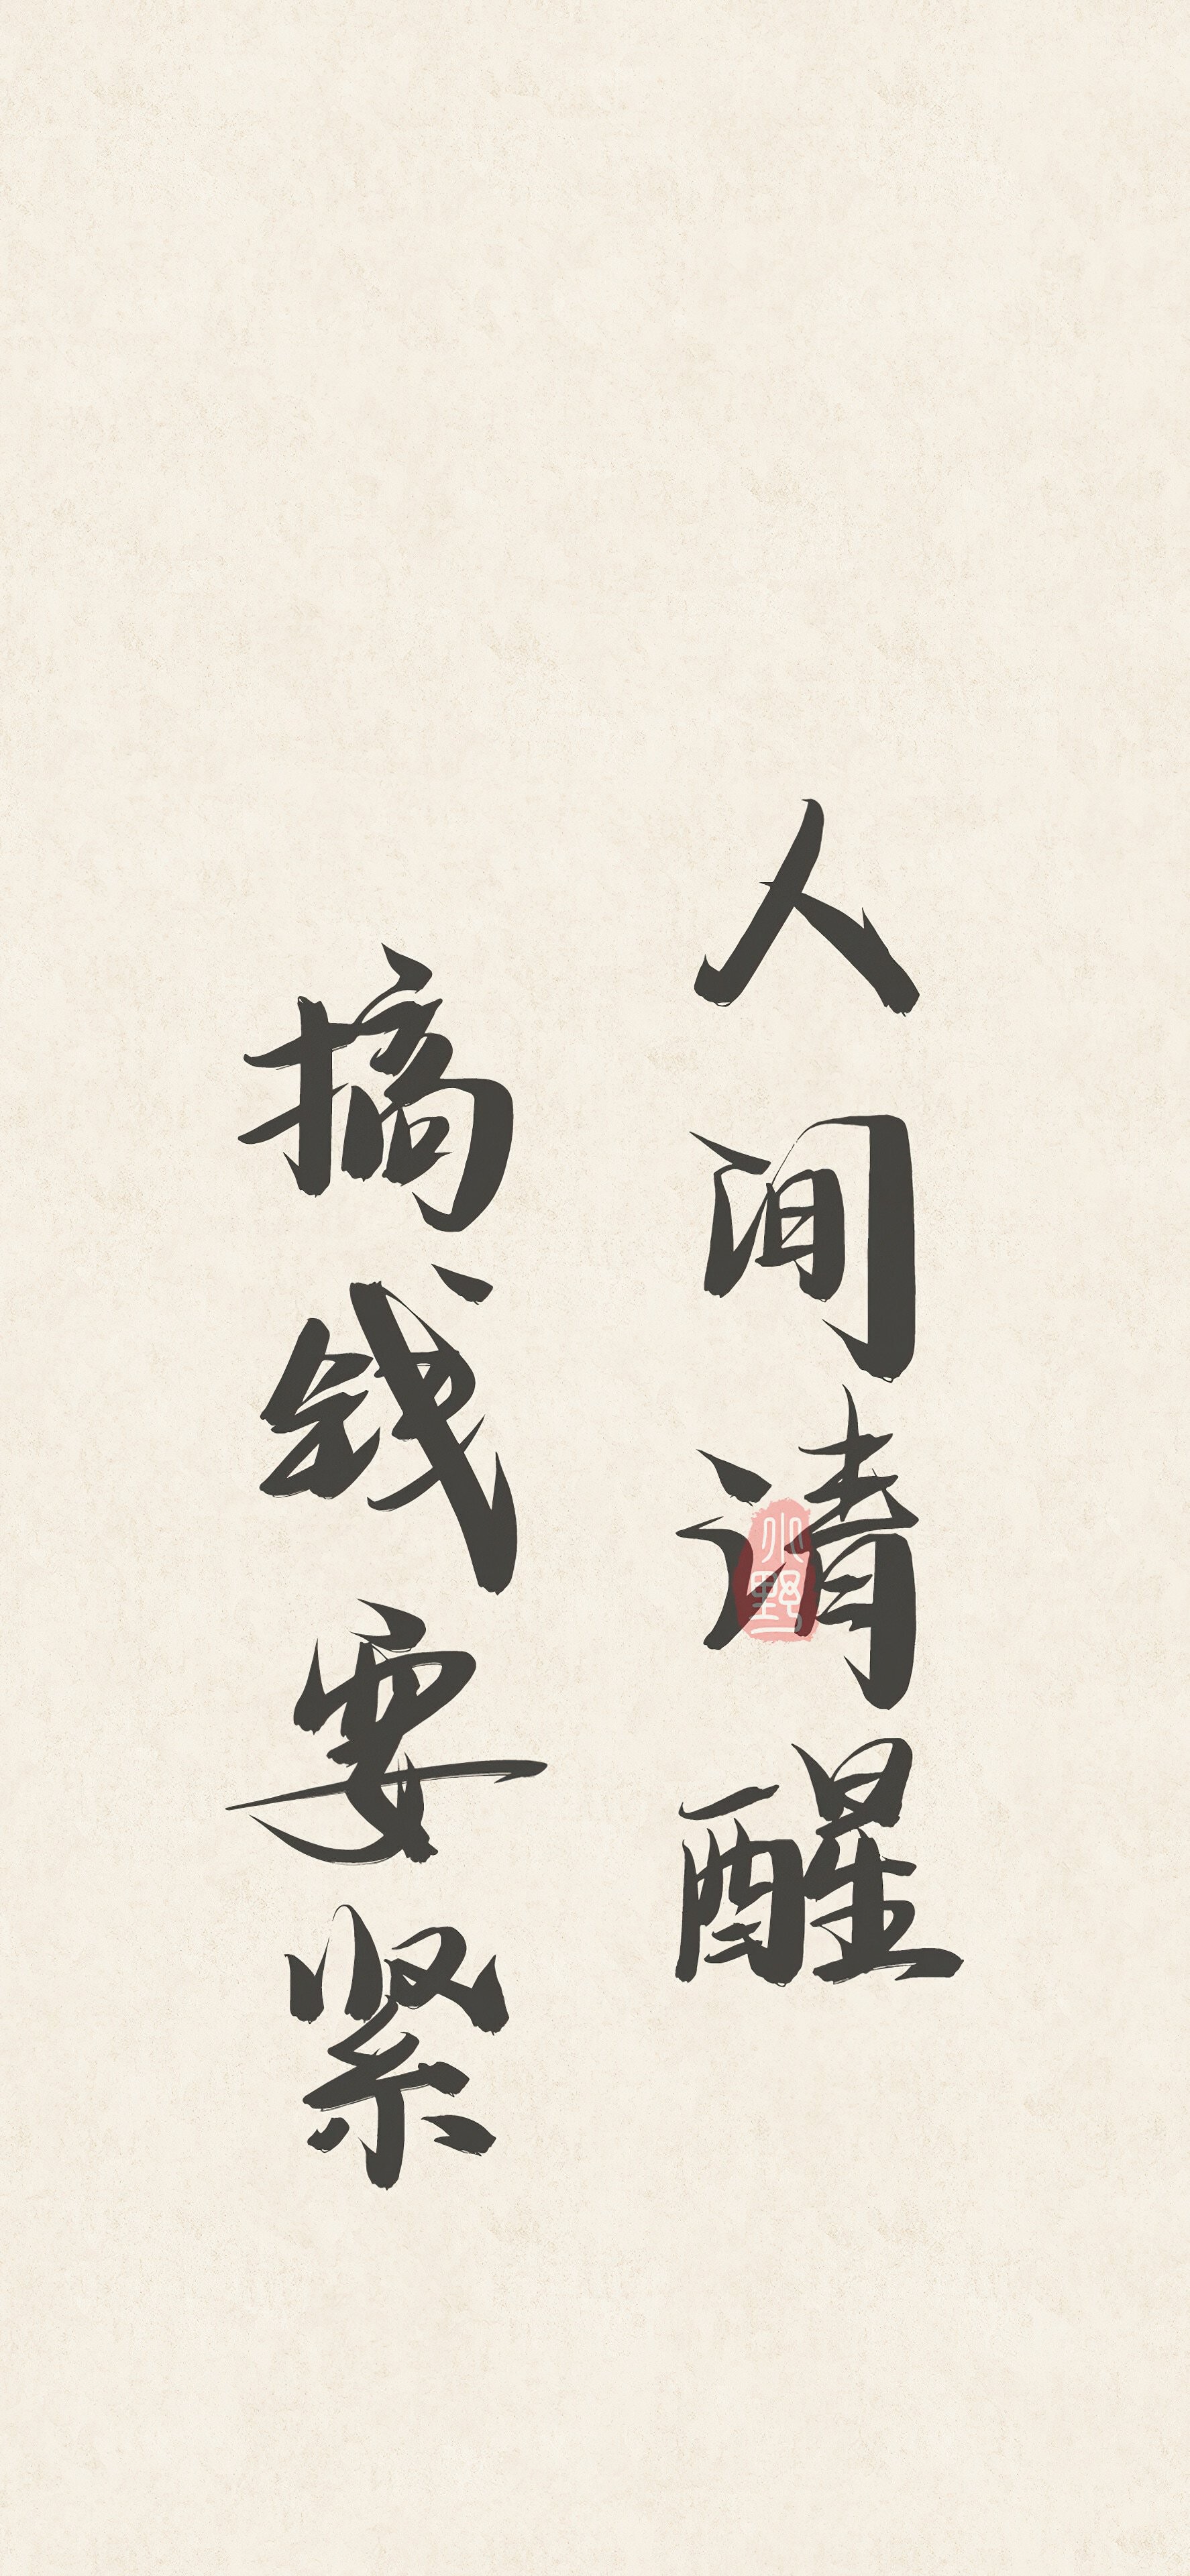 人间清醒
摘钱要紧
小野